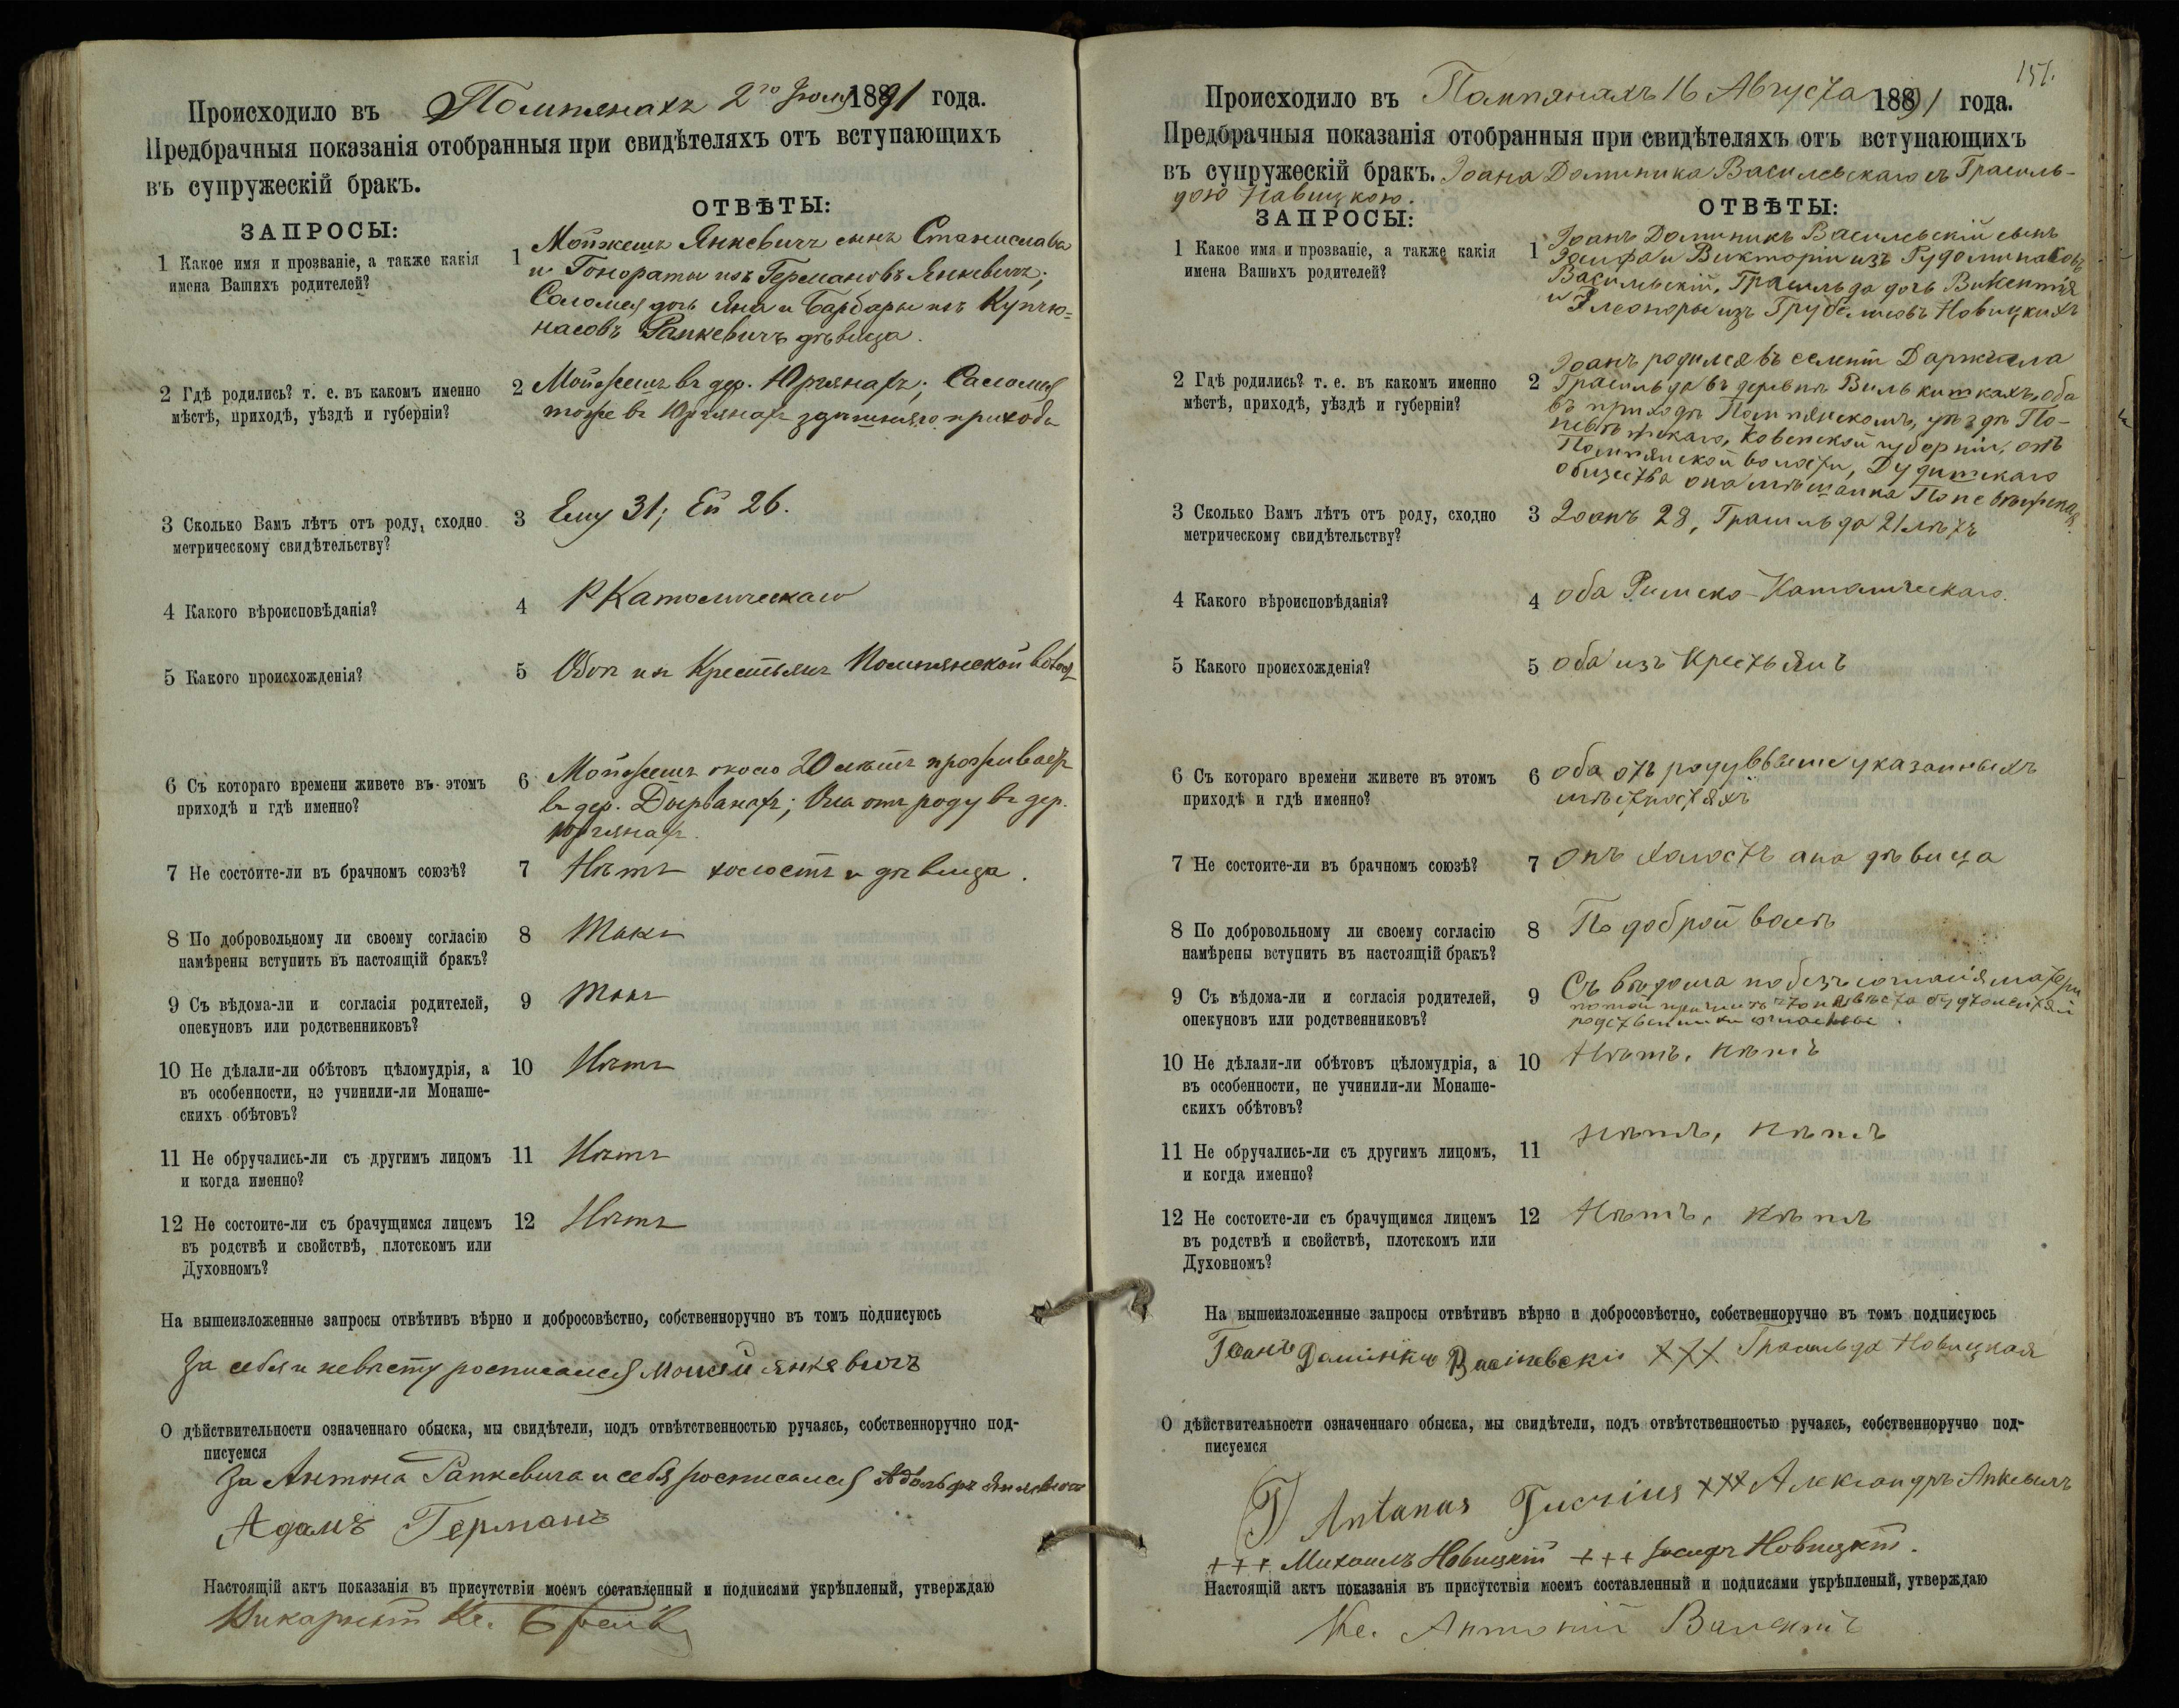 Происходило въ Помпянахъ 2го 1891 года.
Предбрачныя показанія отобранныя при свидѣтеляхъ отъ вступающихъ
въ супружескій бракъ.
ЗАПРОСЫ:
ОТВѢТЫ:
1 Какое имя и прозваніе, а также какія
имена Вашихъ родителей?
1 Мойжешъ Янкевичъ сынъ Станислава
и Гонораты изъ Германовъ Янкевичъ;
Саломея дочь Яна и Барбары изъ Купчю-
насовъ Рапкевичъ дѣвица.
2 Гдѣ родились? т. е. въ какомъ именно
мѣстѣ, приходѣ, уѣздѣ и губерніи?
2 Мойжешъ въ дер. Юргянахъ; Саломея
тоже въ Юргянахъ здѣшняго прихода
3 Сколько Вамъ лѣтъ отъ роду, сходно
метрическому свидѣтельству?
3 Ему 31; Ей 26.
4 Какого вѣроисповѣданія?
4 Р Католическаго
5 Какого происхожденія?
5 Оба изъ Крестьянъ Помпянской волос
6 Съ котораго времени живете въ этомъ
приходѣ и гдѣ именно?
6 Мойжешъ около 20 лѣтъ проживаетъ
въ дер. Она отъ роду въ дер.
Юргянахъ.
7 Не состоите-ли въ брачномъ союзѣ?
7 Нѣтъ холостъ и дѣвица.
8 По добровольному ли своему согласію
намѣрены вступить въ настоящій бракъ?
8 Такъ
9 Съ вѣдома-ли и согласія родителей,
опекуновъ или родственниковъ?
9 Такъ
10 Не дѣлали-ли обѣтовъ цѣломудрія, а
въ особенности, не учинили-ли Монаше-
скихъ обѣтовъ?
10 Нѣтъ
11 Не обручались-ли съ другимъ лицомъ
и когда именно?
11 Нѣтъ
12 Не состоите-ли съ брачущимся лицемъ
въ родствѣ и свойствѣ, плотскомъ или
Духовномъ?
12 Нѣтъ
На вышеизложенные запросы отвѣтивъ вѣрно и добросовѣстно, собственноручно въ томъ подписуюсь
За себя и невѣсту росписался Моисей Янкевичъ
О дѣйствительности означеннаго обыска, мы свидѣтели, подъ отвѣтственностью ручаясь, собственноручно под-
писуемся
За Антона Рапкевича и себя росписался Адольфъ Янкевичъ
Адамъ Германъ
Настоящій актъ показанія въ присутствіи моемъ составленный и подписями укрѣпленый, утверждаю
Викарный Кс.
151.
Происходило въ Помпянахъ 16 Августа 1891 года.
Предбрачныя показанія отобранныя при свидѣтеляхъ отъ вступающихъ
въ супружескій бракъ. Іоана Доминика Василевскаго съ Грасиль-
дою Навицкою.
ЗАПРОСЫ:
ОТВѢТЫ:
1 Какое имя и прозваніе, а также какія
имена Вашихъ родителей?
1 Іоанъ Доминикъ Василевскій сынъ
Іосифа и Викторіи изъ Рудоминавовъ
Василевскій, Грасильда дочь Викентія
и Элеоноры изъ Новицкихъ
2 Гдѣ родились? т. е. въ какомъ именно
мѣстѣ, приходѣ, уѣздѣ и губерніи?
2 Іоанъ родился въ селеніи
Грасильда въ деревнѣ Вилькишкахъ, оба
въ приходѣ Помпянскомъ, уѣздѣ По-
невѣжскаго, Ковенской губерніи, отъ
Помпянской волости,
общества она мѣщанка Поневѣжская
3 Сколько Вамъ лѣтъ отъ роду, сходно
метрическому свидѣтельству?
3 Іоанъ 28, Грасильда 21 лѣтъ
4 Какого вѣроисповѣданія?
4 оба Римско-Католическаго.
5 Какого происхожденія?
5 оба изъ Крестьянъ
6 Съ котораго времени живете въ этомъ
приходѣ и гдѣ именно?
6 оба отъ роду въ выше указанныхъ
мѣстностяхъ
7 Не состоите-ли въ брачномъ союзѣ?
7 онъ холостъ она дѣвица
8 По добровольному ли своему согласію
намѣрены вступить въ настоящій бракъ?
8 По доброй волѣ
9 Съ вѣдома-ли и согласія родителей,
опекуновъ или родственниковъ?
9 Съ вѣдома но безъ согласія матери
родственники
10 Не дѣлали-ли обѣтовъ цѣломудрія, а
въ особенности, не учинили-ли Монаше-
скихъ обѣтовъ?
10 Нѣтъ, нѣтъ
11 Не обручались-ли съ другимъ лицомъ,
и когда именно?
11 Нѣтъ, нѣтъ
12 Не состоите-ли съ брачущимся лицемъ
въ родствѣ и свойствѣ, плотскомъ или
Духовномъ?
12 Нѣтъ, нѣтъ
На вышеизложенные запросы отвѣтивъ вѣрно и добросовѣстно, собственноручно въ томъ подписуюсь
Іоанъ +++ Грасильда Новицкая
О дѣйствительности означеннаго обыска, мы свидѣтели, подъ отвѣтственностью ручаясь, собственноручно под-
писуемся
Antanas +++ Александръ
+++ Михаилъ Новицкій +++ Іосифъ Новицкій.
Настоящій актъ показанія въ присутствіи моемъ составленный и подписями укрѣпленый, утверждаю
Кс. Антоній